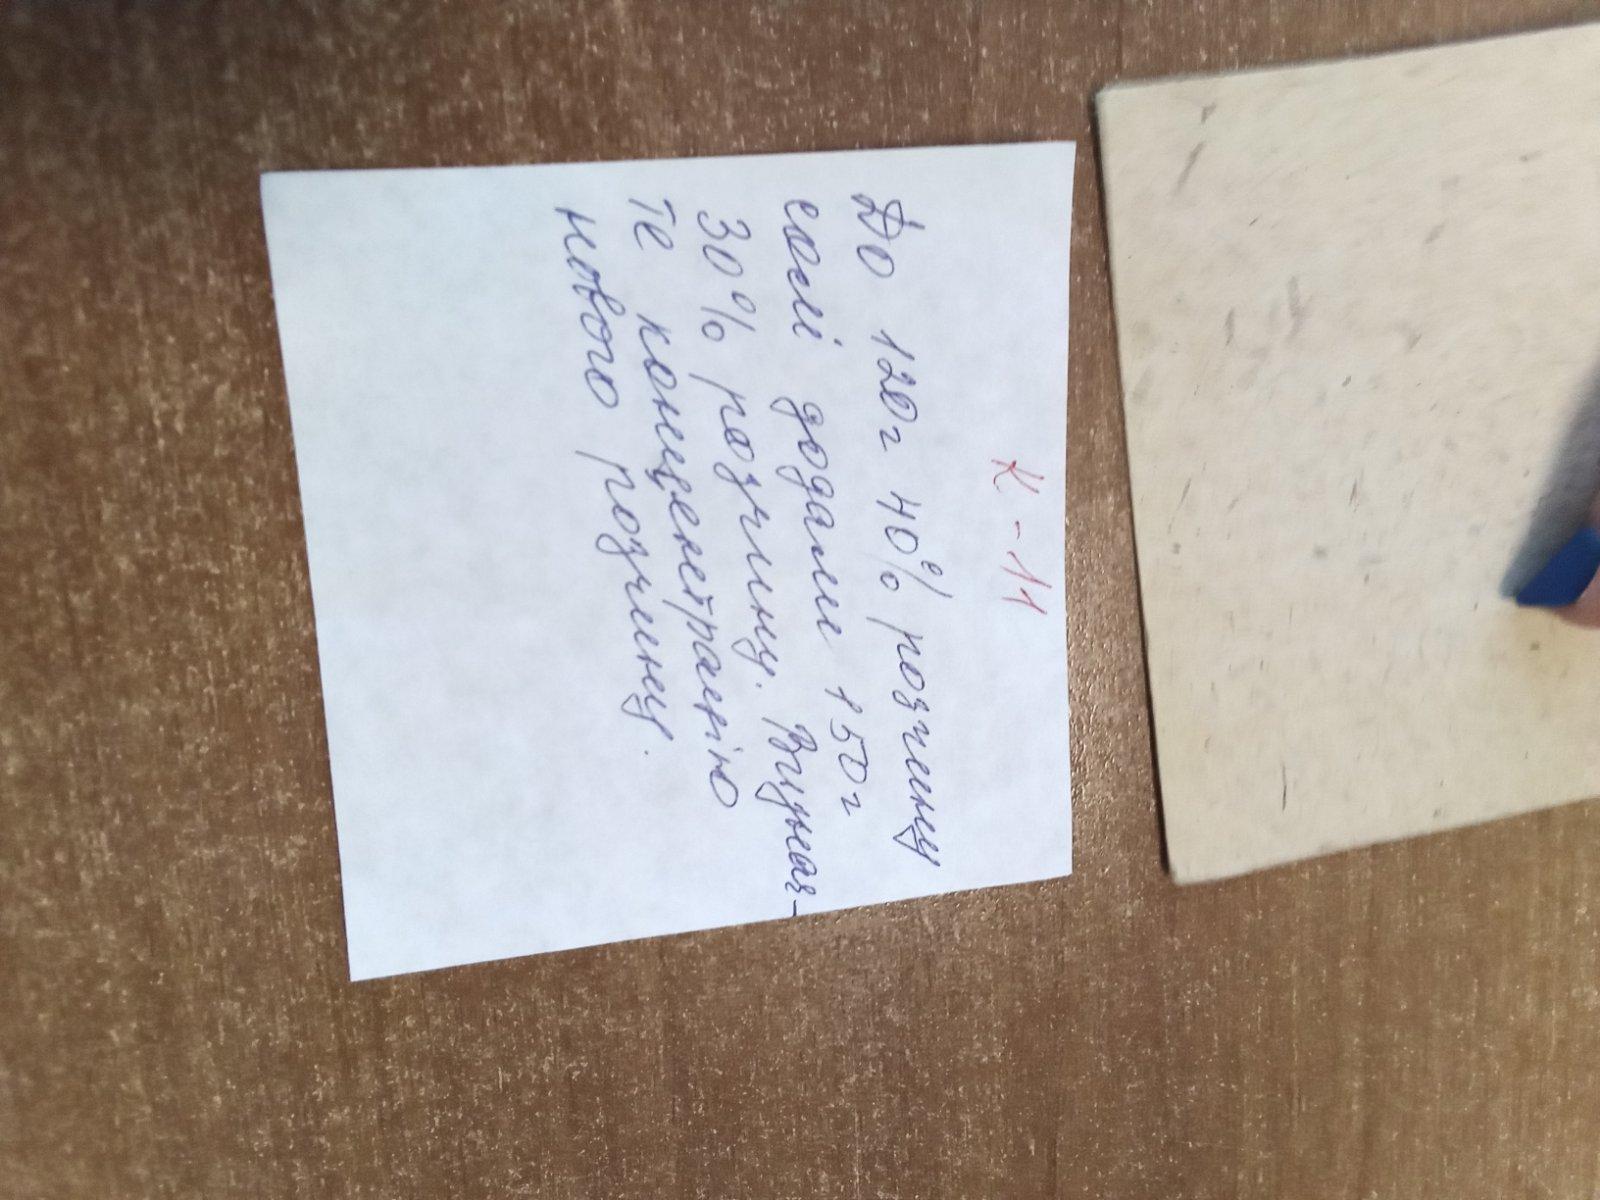 К-11
До 120г 40% розчину
солі додали 150г
30% розчину. Визнач-
те концентрацію
нового розчину.